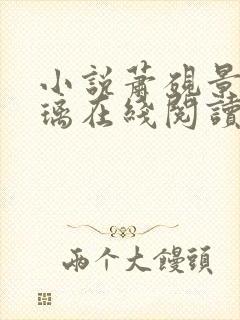 小說蕭硯景
璃在綫閱讀
兩个大饅頭